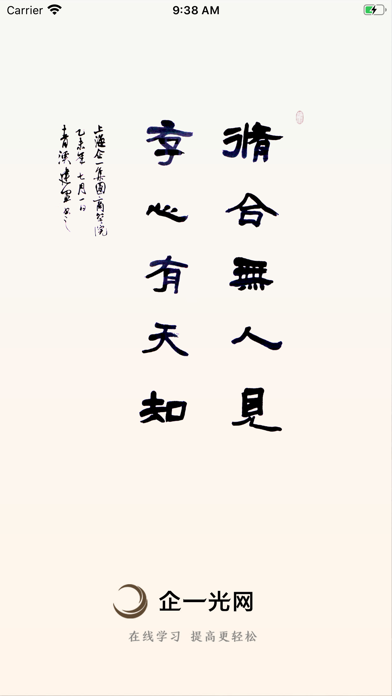 Carrier 9:38 AM
脩合無人見
存心有天知
上海企一集團商學院
乙未年七月一日
企一光网
在线学习 提高更轻松